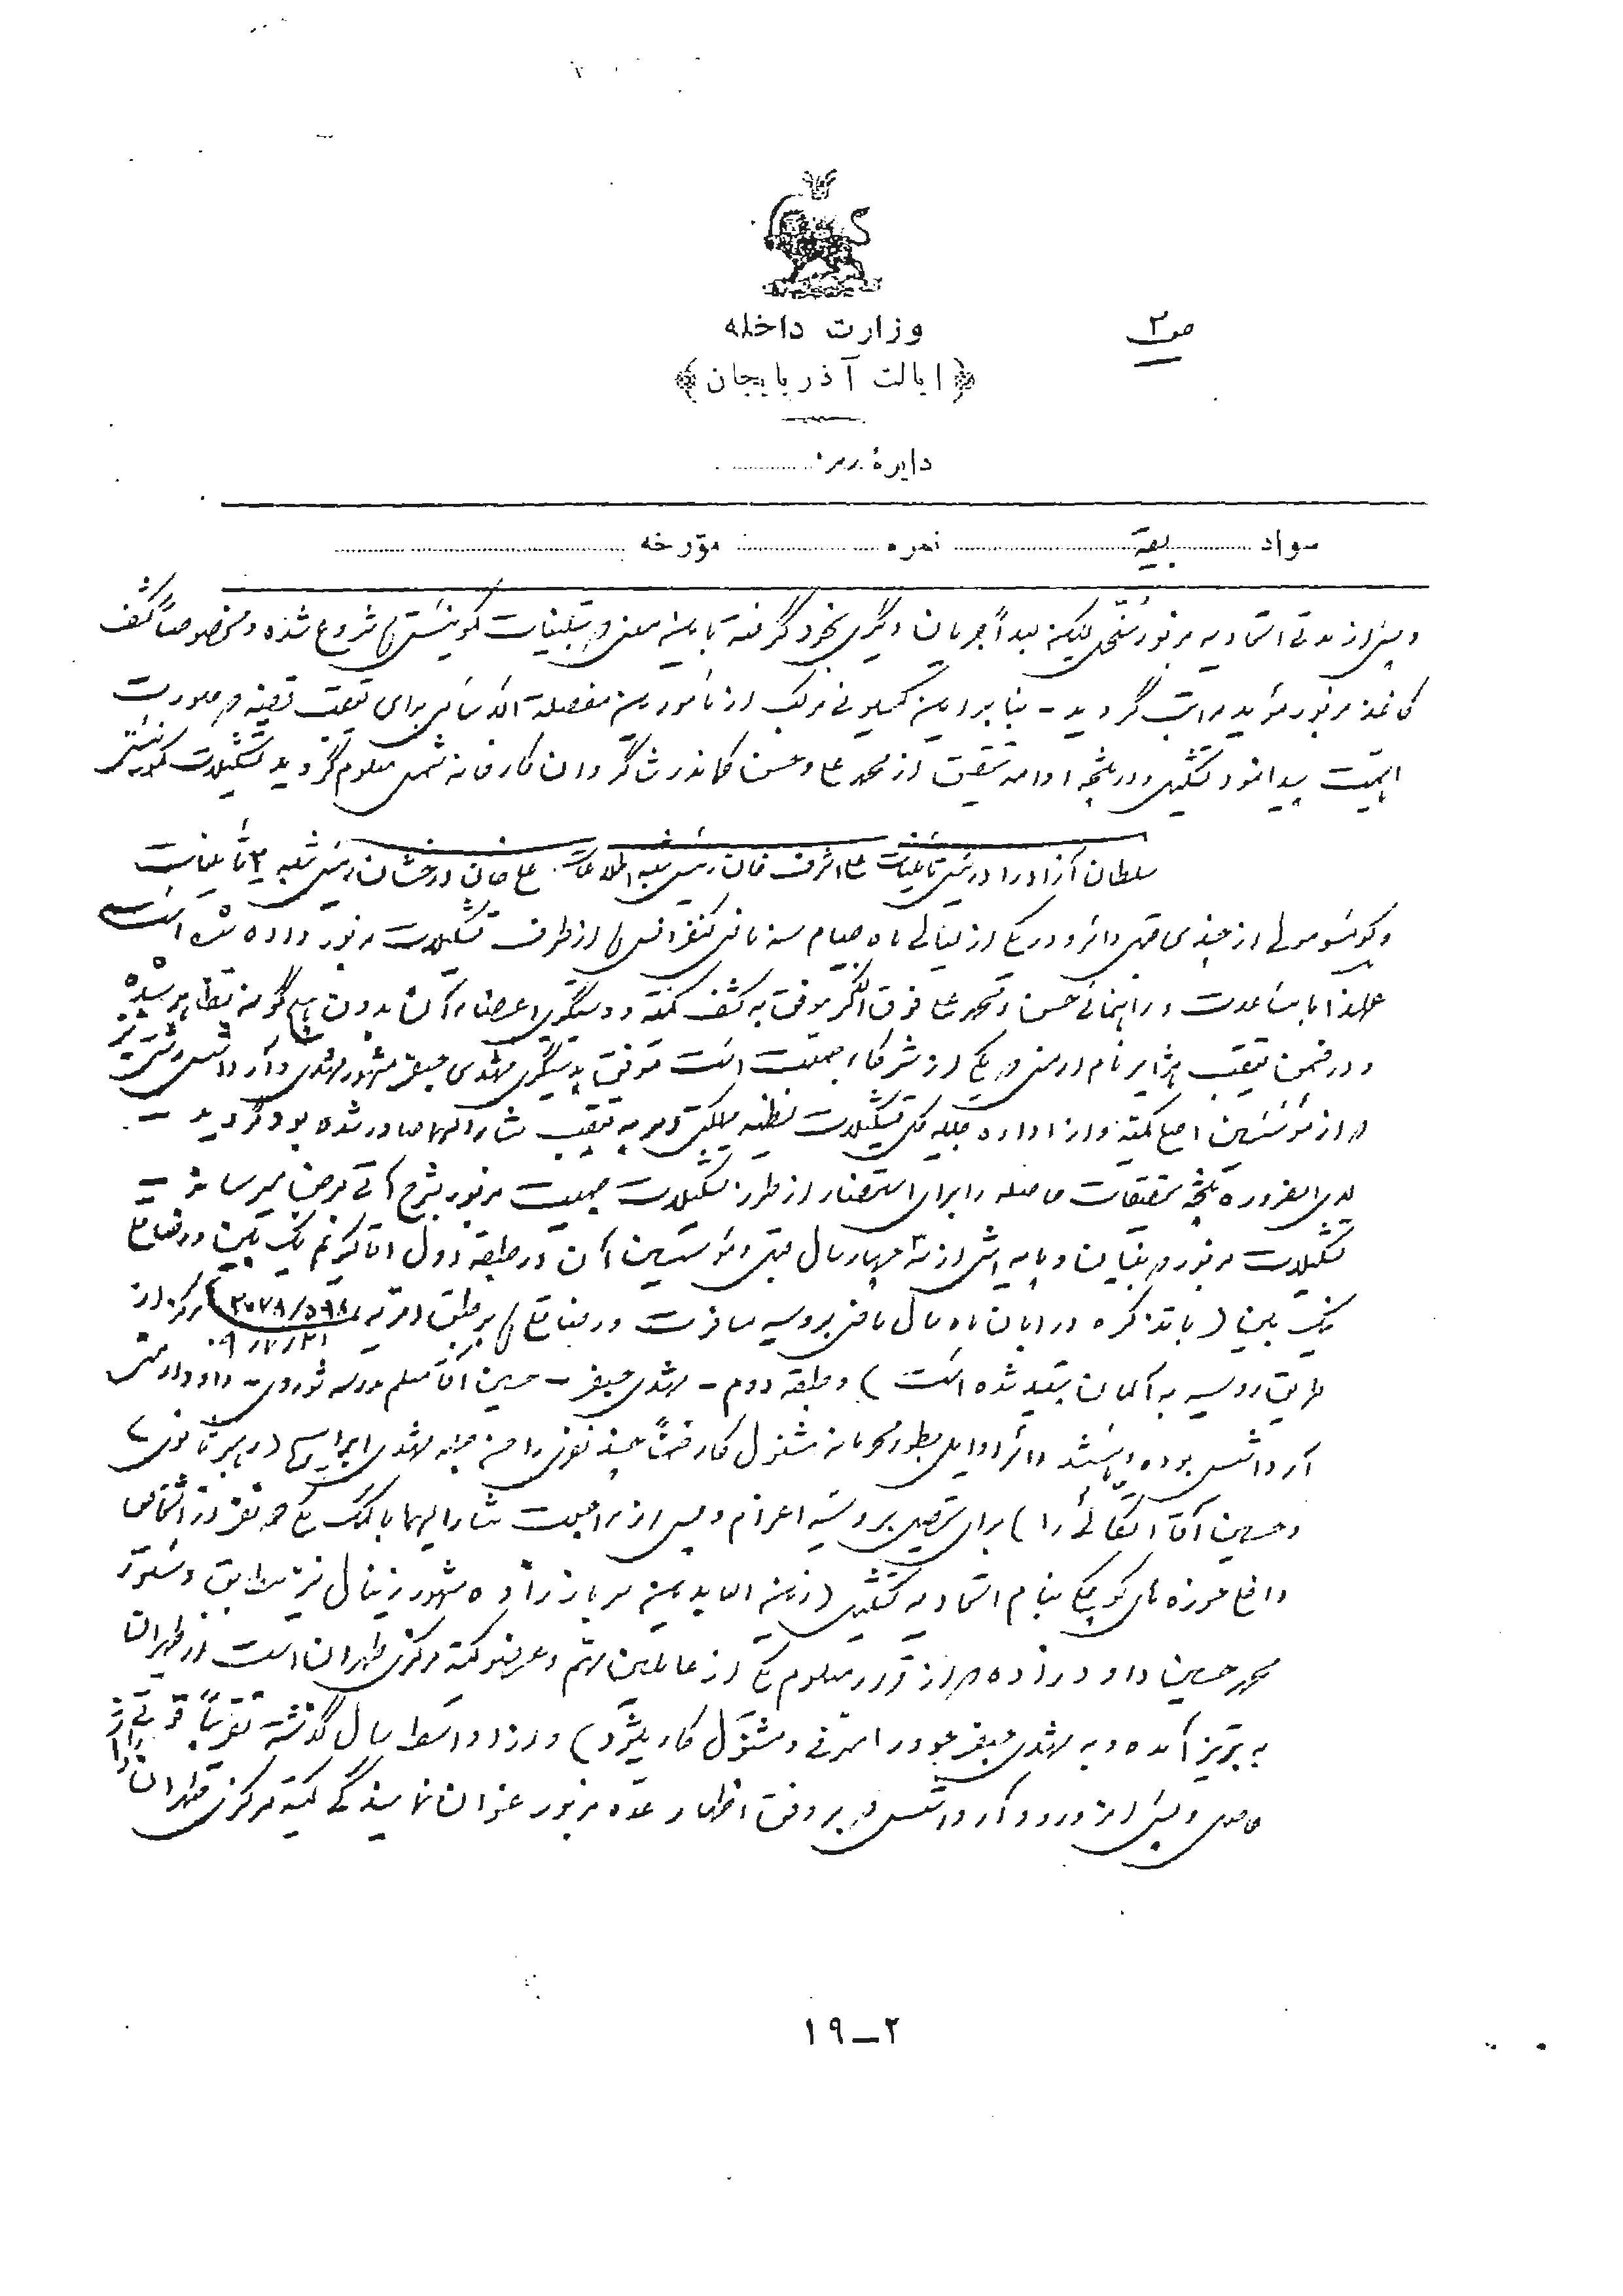 ص ۲
وزارت داخله
ایالت آذربایجان
دایرهٔ رمز
سواد بقیه نمره مورخه
و پس از مدتی اتحادیه مزبور منحل لیکن بعداً جریان دیگری بخود گرفته باین معنی که تبلیغات کمونیستی ها شروع شده و مخصوصاً کشف
کاغذ مزبور مؤید مراتب گردید - بنا بر این کمیسیونی مرکب از مأمورین مفصلة الاسامی برای تعقیب قضیه که صورت
اهمیت پیدا نمود تشکیل و در نتیجه ادامه تحقیق از محمد علی و حسن کماندر شاگردان کارخانه شمس معلوم گردید تشکیلات کمونیستی
سلطان آزاد راد رئیس تأمینات علی اشرف خان رئیس شعبه اطلاعات علی خان درخشان رئیس شعبه ۲ تأمینات
و کمونسومولی از چندی قبل دائر و در یکی از لیالی ماه صیام سنه ماضی کنفرانس ها از طرف تشکیلات مزبور داده شده است
علیهذا با مساعدت و راهنمائی حسن و محمد علی فوق الذکر موفق به کشف کمیته و دستگیری اعضاء آن بدون هیچ گونه تظاهر شده
و در ضمن تعقیب هژابر نام ارمنی که یکی از شرکاء جمعیت است موفق بدستگیری مهدی جعفر مشهور مشهدی و آرداشس
که از مؤسسین اصلی کمیته و از اداره جلیله کل تشکیلات نظمیه مملکتی امر به تعقیب مشارالیهما صادر شده بود گردید -
لدی الضروره نتیجه تحقیقات حاصله را برای استحضار از طرز تشکیلات جمعیت مزبور بشرح آتی بعرض میرساند -
تشکیلات مزبور که بنیان و پایه اش از سه چهار سال قبل و مؤسسین آن در طبقه اول
(با تذکره در ابان ماه سال ماضی بروسیه مسافرت بر طبق امریه ۲۰۷۸/۵۹۸ مرکز از
۹/۷/۲۱
طریق روسیه به آلمان تبعید شده است) و طبقه دوم - مشهدی جعفر - حسین آقا معلم مدرسه شوروی - داود ارمنی
آرداشس بوده و میباشند در اوایل بطور محرمانه مشغول کار ضمناً چند نفری را من جمله مشهدی ابراهیم
و حسین آقا را) برای تحصیل بروسیه اعزام و پس از مراجعت مشارالیهما با کمک یکی دو نفر از اشخاص
داغ حوزه های کوچکی بنام اتحادیه تشکیل (زین العابدین سرباز زاده مشهور زینال نیز مطابق دستور
محمد حسین داودزاده که از قرار معلوم یکی از عاملین مهم و عضو کمیته مرکزی طهران است از طهران
به تبریز آمده و به مشهدی جعفر خود را معرفی و مشغول کار میشود) و از اواسط سال گذشته تقریباً قوتی
حاصل و پس از ورود آرداشس که بر وفق اظهار عده مزبور عنوان نمایندگی کمیته مرکزی طهران را
۱۹-۲